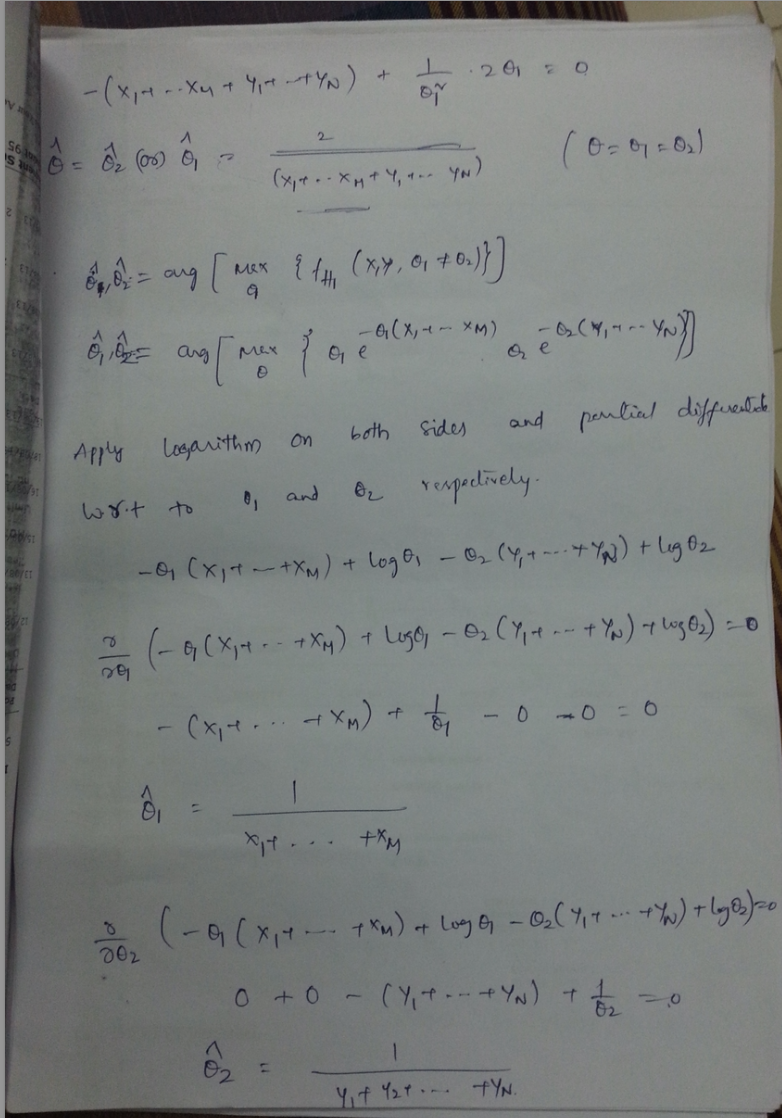 -(X₁+ -- X_M + Y₁+ -- +Y_N) + 1/θ₁² · 2θ₁ = 0
θ̂ = θ̂₂ (or) θ̂₁ = 2/(X₁+ -- X_M + Y₁+ -- Y_N) (θ = θ₁ = θ₂)
θ̂₁, θ̂₂ = arg [ max θ { f_H₁ (X,Y, θ₁ ≠ θ₂)}]
θ̂₁, θ̂₂ = arg [ max θ { θ₁ e^{-θ₁(X₁+ -- X_M)} θ₂ e^{-θ₂(Y₁+ --- Y_N)}}]
Apply logarithm on both sides and partial differentiate
w.r.t to θ₁ and θ₂ respectively.
-θ₁ (X₁+ -- +X_M) + logθ₁ - θ₂ (Y₁+ --- +Y_N) + logθ₂
∂/∂θ₁ (-θ₁(X₁+ -- +X_M) + logθ₁ - θ₂ (Y₁+ -- +Y_N) + logθ₂) = 0
-(X₁+ ... +X_M) + 1/θ₁ - 0 - 0 = 0
θ̂₁ = 1/(X₁+ ... +X_M)
∂/∂θ₂ (-θ₁(X₁+ --- +X_M) + logθ₁ - θ₂(Y₁+ --- +Y_N) + logθ₂) = 0
0 + 0 - (Y₁+ --- +Y_N) + 1/θ₂ = 0
θ̂₂ = 1/(Y₁+ Y₂+ ... +Y_N)